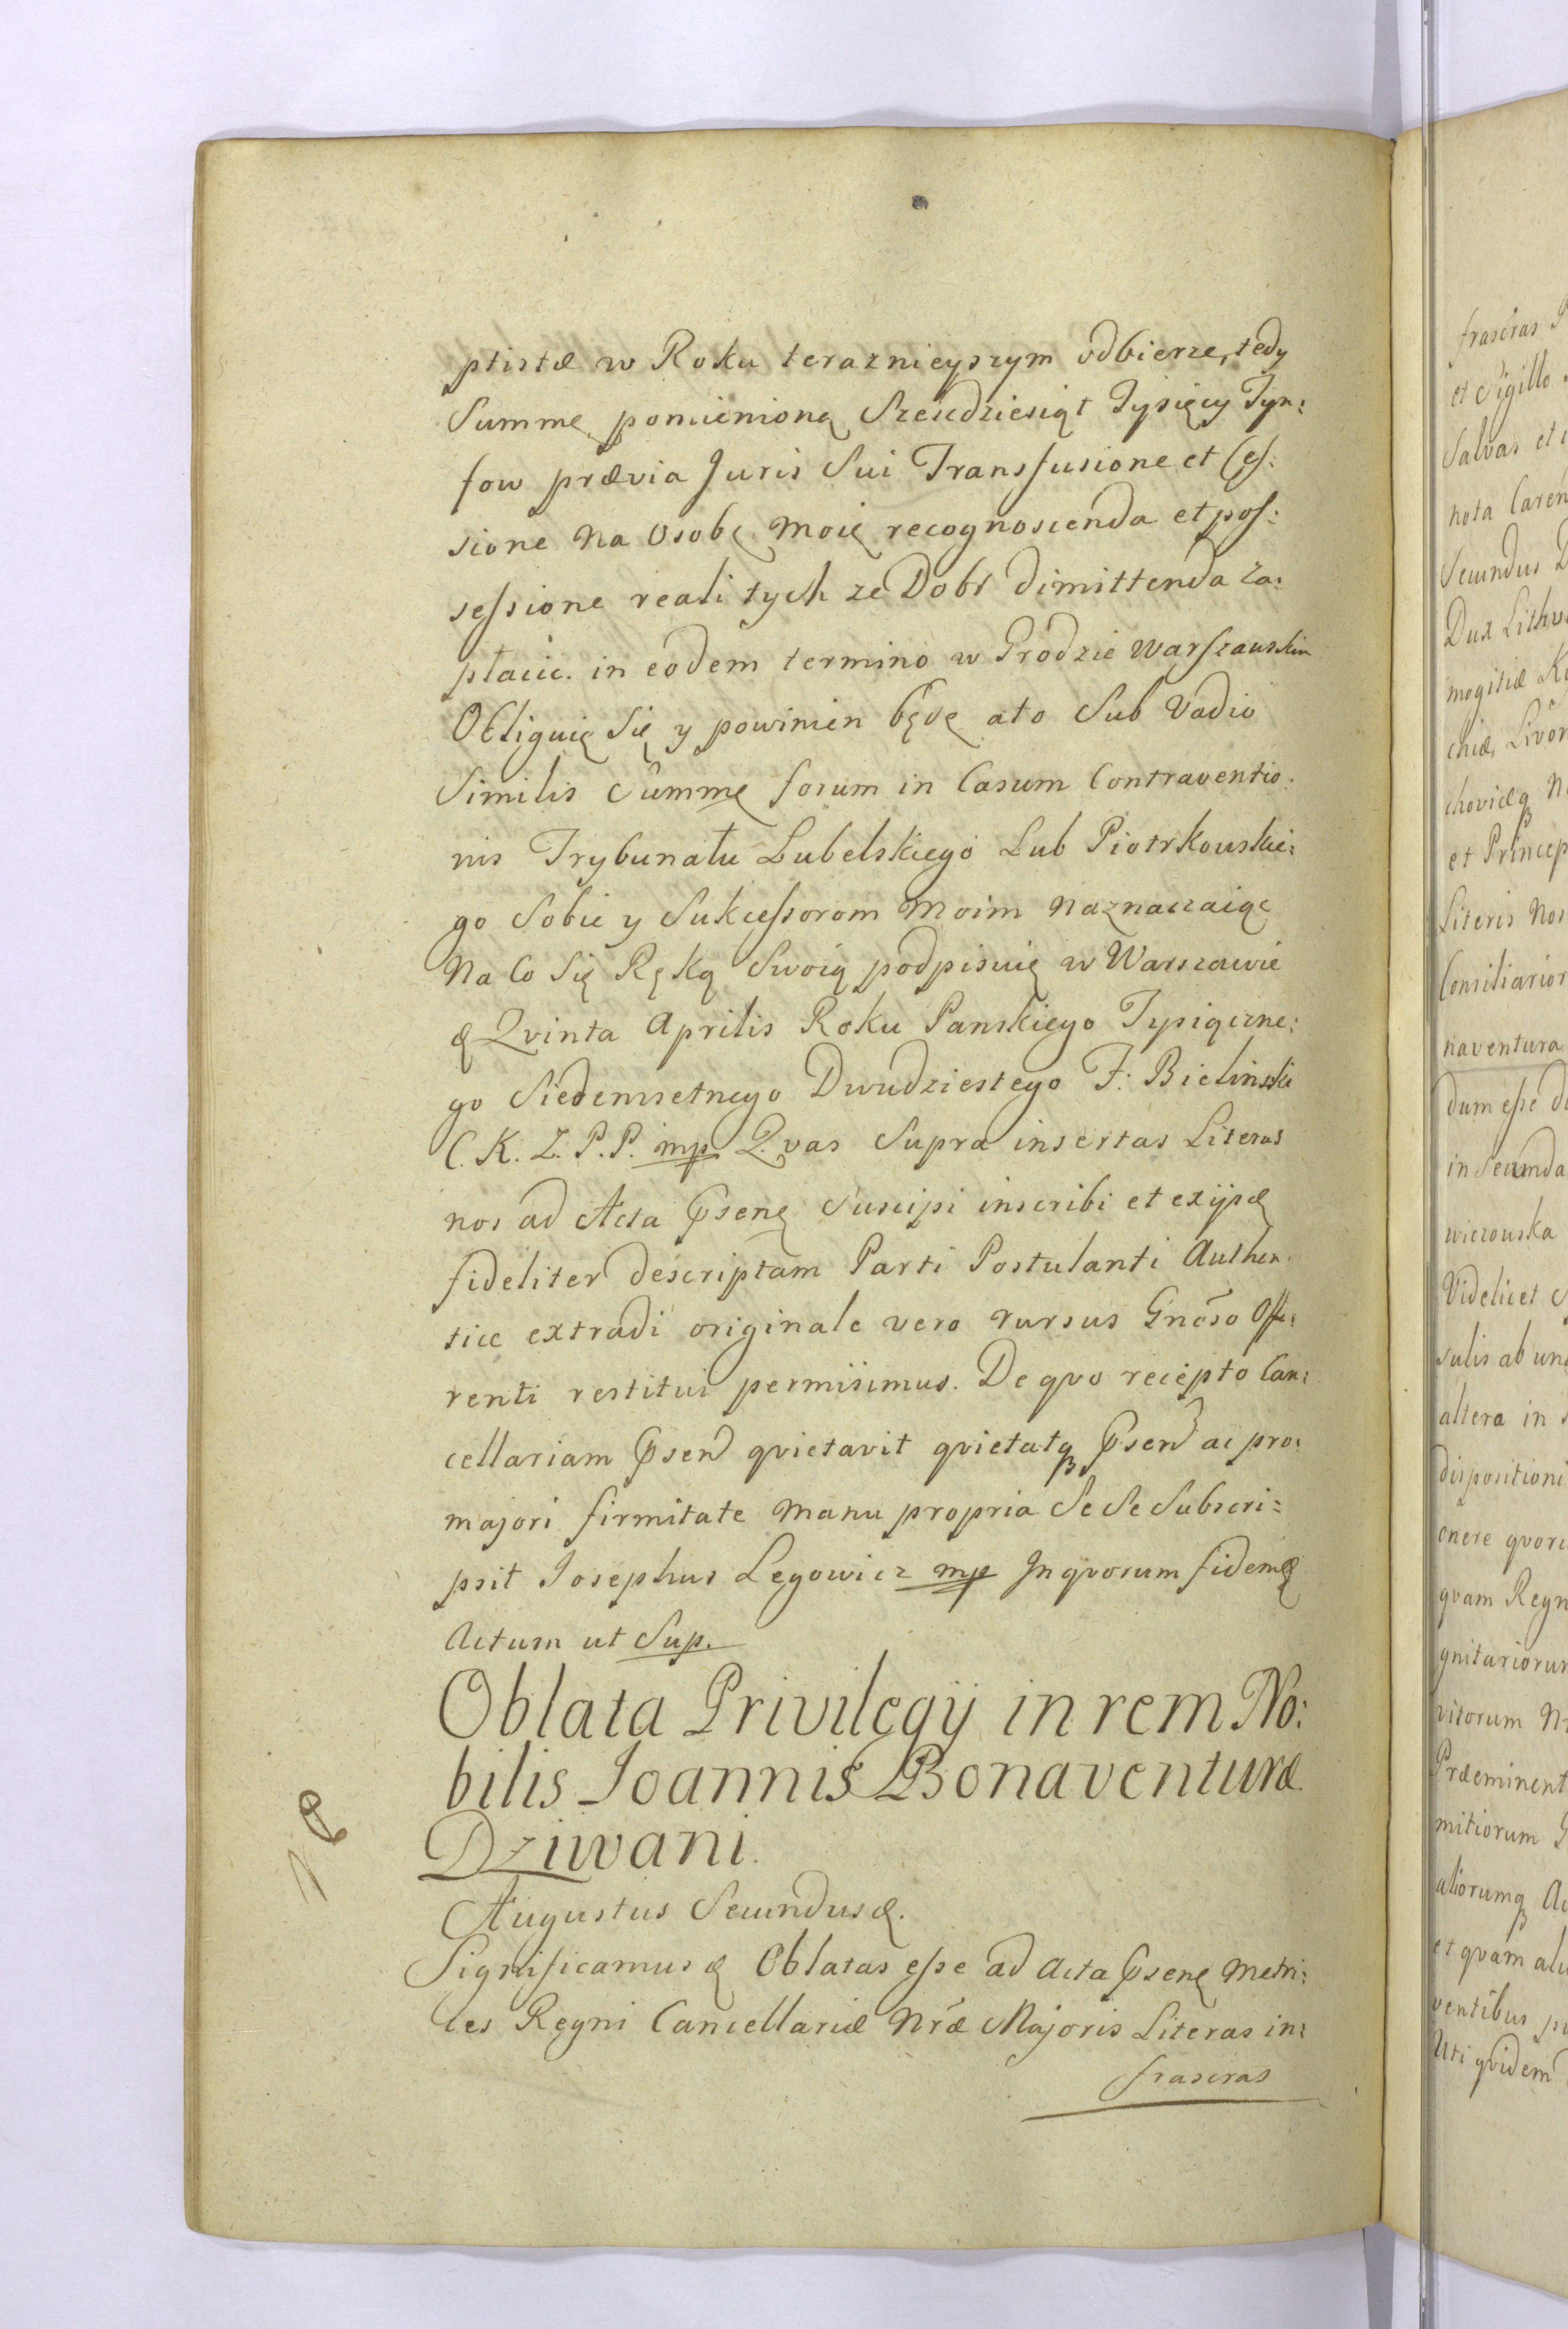 ptistæ w Roku teraznieyszym odbierze, tedy
Summę pomienioną Szescdziesiąt Tysięcy Tyn:
fow prævia Juris Sui Transfusione et Ces:
sione na Osobę moię recognoscenda et pos:
sessione reali tych ze Dobr dimittenda za:
płacic. in eodem termino w Grodzie Warszawskim
Obliguię Się y powinien będę a to Sub Vadio
Similis Summę forum in Casum Contraventio:
nis Trybunału Lubelskiego Lub Piotrkowskie:
go Sobie y Sukcessorom moim naznaczaiąc
Na Co Się Ręką Swoią podpisuię w Warszawie
& Qvinta Aprilis Roku Panskiego Tysiączne:
go Siedemsetnego Dwudziestego F: Bielinski
C. K. Z. P. P. mp. Qvas Supra insertas Literas
nos ad Acta Psenę Suscipi inscribi et exijsdę
fideliter descriptam Parti Postulanti Authen:
tice extradi originale vero rursus Gnoso Offe:
renti restitui permisimus. De qvo recepto Can:
cellariam Psen qvietavit qvietatq Psen ac pro:
majori firmitate manu propria Se Se Subscri:
psit Josephus Legowicz mp In qvorum fidem &
Actum ut Sup.
Oblata Privilegij in rem No:
bilis Joannis Bonaventuræ
Dziwani.
Augustus Secundus &.
Significamus & Oblatas esse ad Acta Psenę Metri:
ces Regni Cancellariæ Nræ Majoris Literas in:
frascras
frascras
et Sigillo
Salvas et
nota Caren
Secundus D
Dux Lithv
mogitiæ Ki
chiæ, Livon
chovicęq
et Princep
Literis Nos
Consiliarior
naventura
dum esse d
in Secunda
wiczouska
Videlicet
sulis ab un
altera in
dispositioni
enere qvori
qvam Regn
gnitariorum
visorum
Præeminent
mitiorum
aliorumq Ac
et qvam ali
ventibus p
Uti qvidem